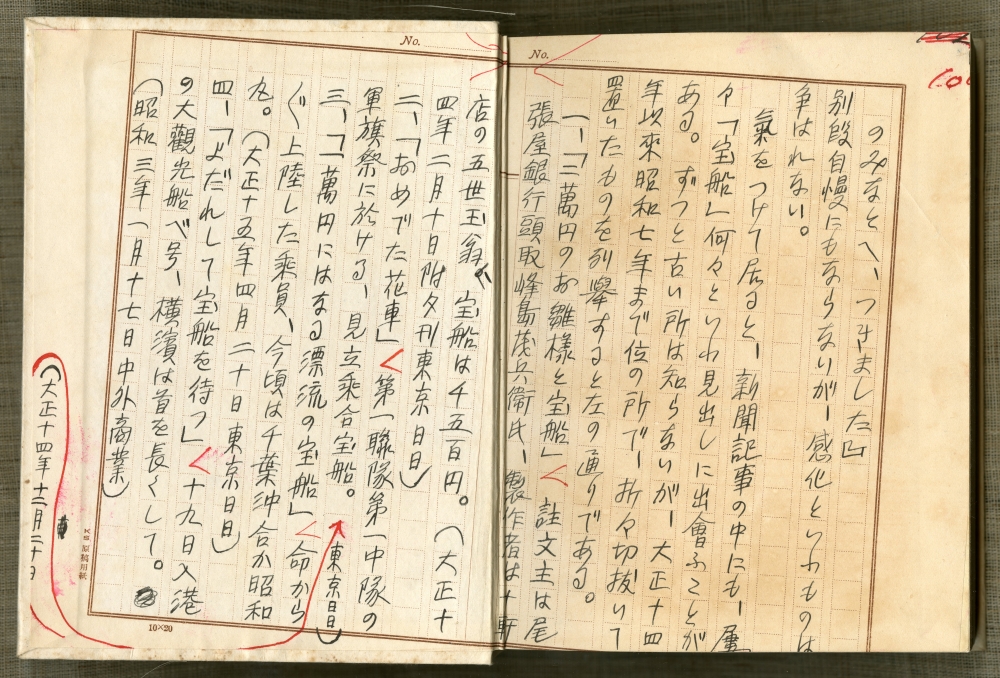 No.
のみなとへ、つきました凹
別段自慢にもならないが、感化といふものは
争はれない。
氣をつけて居ると、新聞記事の中にも、屡
々「宝船」何々といふ見出しに出會ふことが
ある。ずつと古い所は知らないが、大正十四
年以來昭和七年まで位の所で、折々切抜いて
置いたものを列擧すると左の通りである。
一、「二萬円のお雛様と宝船」 註文主は尾
張屋銀行頭取峰島茂兵衞氏、製作者は十軒
No.
店の五世玉翁、宝船は千五百円。(大正十
四年二月十日附夕刊東京日日)
二、「おめでた花車」 第一聯隊第一中隊の
軍旗祭に於ける、見立乘合宝船。
(大正十四年十二月二十日
東京日日)
三、「一萬円にはなる漂流の宝船」 命から
〴〵上陸した乘員、今頃は千葉沖合か昭和
丸。(大正十五年四月二十日東京日日)
四、「よだれして宝船を待つ」 十九日入港
の大觀光船べ号、横濱は首を長くして。
(昭和三年一月十七日中外商業)
原稿用紙
10×20